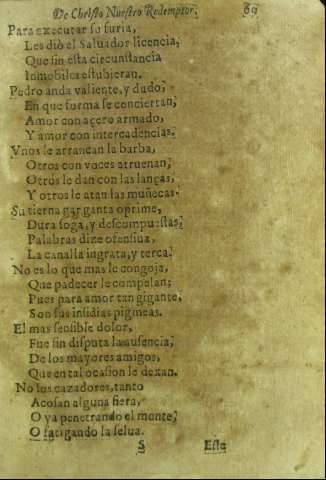 De Christo Nuestro Redemptor. 69
Para executar su furia,
Les diò el Saluador licencia,
Que sin esta circunstancia
Inmobiles estubieran.
Pedro anda valiente, y dudo,
En que forma se conciertan,
Amor con açero armado,
Y amor con intercadencias.
Vnos le arrancan la barba,
Otros con voces atruenan,
Otros le dan con las lanças,
Y otros le atan las muñecas.
Su tierna garganta oprime,
Dura soga, y descompuestas,
Palabras dize ofensiua,
La canalla ingrata, y terca.
No es lo que mas le congoja,
Que padecer le compelan;
Pues para amor tan gigante,
Son sus insidias pigmeas.
El mas sensible dolor,
Fue sin disputa la ausencia,
De los mayores amigos,
Que en tal ocasion le dexan.
No los cazadores, tanto
Acosan alguna fiera,
O ya penetrando el monte,
O fatigando la selua.
S Este